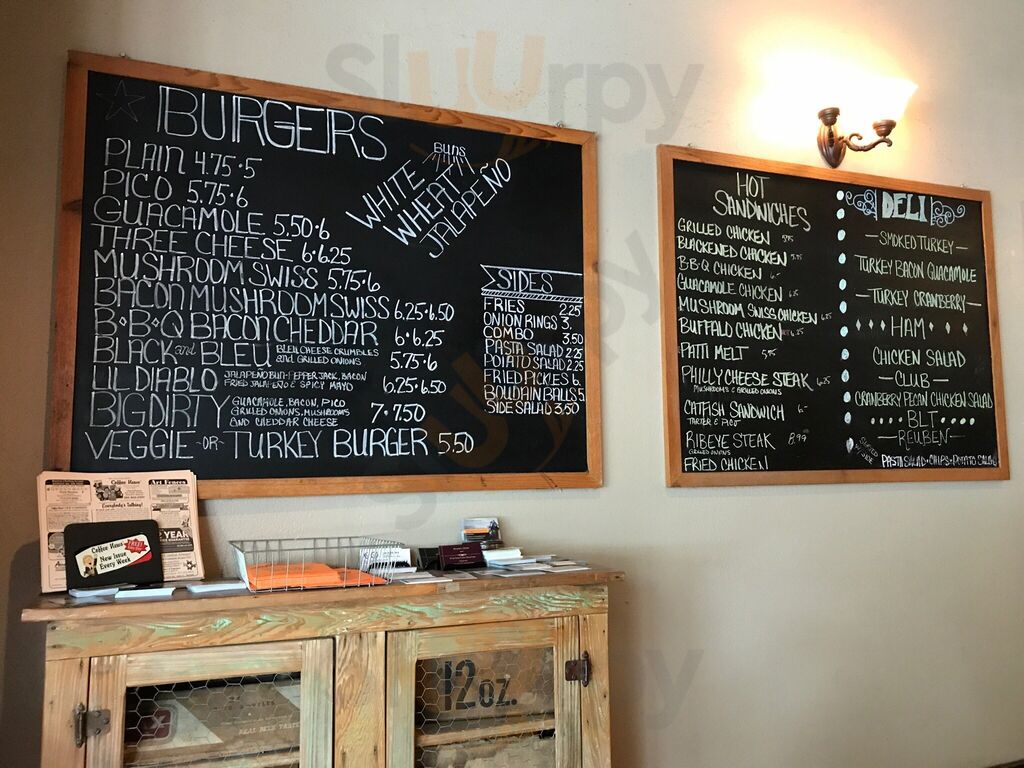 Sluurpy
BURGERS
PLAIN 4.75·5
PICO 5.75·6
GUACAMOLE 5.50·6
THREE CHEESE 6·6.25
MUSHROOM SWISS 5.75·6
BACON MUSHROOM SWISS 6.25·6.50
B·B·Q BACON CHEDDAR 6·6.25
BLACK and BLEU BLEU CHEESE CRUMBLES
and GRILLED ONIONS 5.75·6
LIL DIABLO JALAPENO BUN·PEPPERJACK, BACON
FRIED JALAPEÑO & SPICY MAYO 6.25·6.50
BIG DIRTY GUACAMOLE, BACON, PICO
GRILLED ONIONS, MUSHROOMS
AND CHEDDAR CHEESE 7·7.50
VEGGIE -OR- TURKEY BURGER 5.50
BUNS
WHITE
WHEAT
JALAPEÑO
SIDES
FRIES 2.25
ONION RINGS 3.
COMBO 3.50
PASTA SALAD 2.25
POTATO SALAD 2.25
FRIED PICKLES 6.
BOUDAIN BALLS 5.
SIDE SALAD 3.50
HOT
SANDWICHES
GRILLED CHICKEN 5.95
BLACKENED CHICKEN
B·B·Q CHICKEN 6-
GUACAMOLE CHICKEN 6.25
MUSHROOM SWISS CHICKEN 6.25
BUFFALO CHICKEN 6.25
PATTI MELT 5.95
PHILLY CHEESE STEAK 6.25
MUSHROOMS & GRILLED ONIONS
CATFISH SANDWICH 6-
TARTER & PICO
RIBEYE STEAK 8.99
GRILLED ONIONS
FRIED CHICKEN
DELI
SMOKED TURKEY
TURKEY BACON GUACAMOLE
TURKEY CRANBERRY
HAM
CHICKEN SALAD
CLUB
CRANBERRY PECAN CHICKEN SALAD
BLT
REUBEN
SERVED
W/ SIDE
PASTA SALAD·CHIPS·POTATO SALAD
Coffee News
Art Fences
Everybody's Talking!
YEAR
Coffee News
New Issue
Every Week
FREE!
12oz.